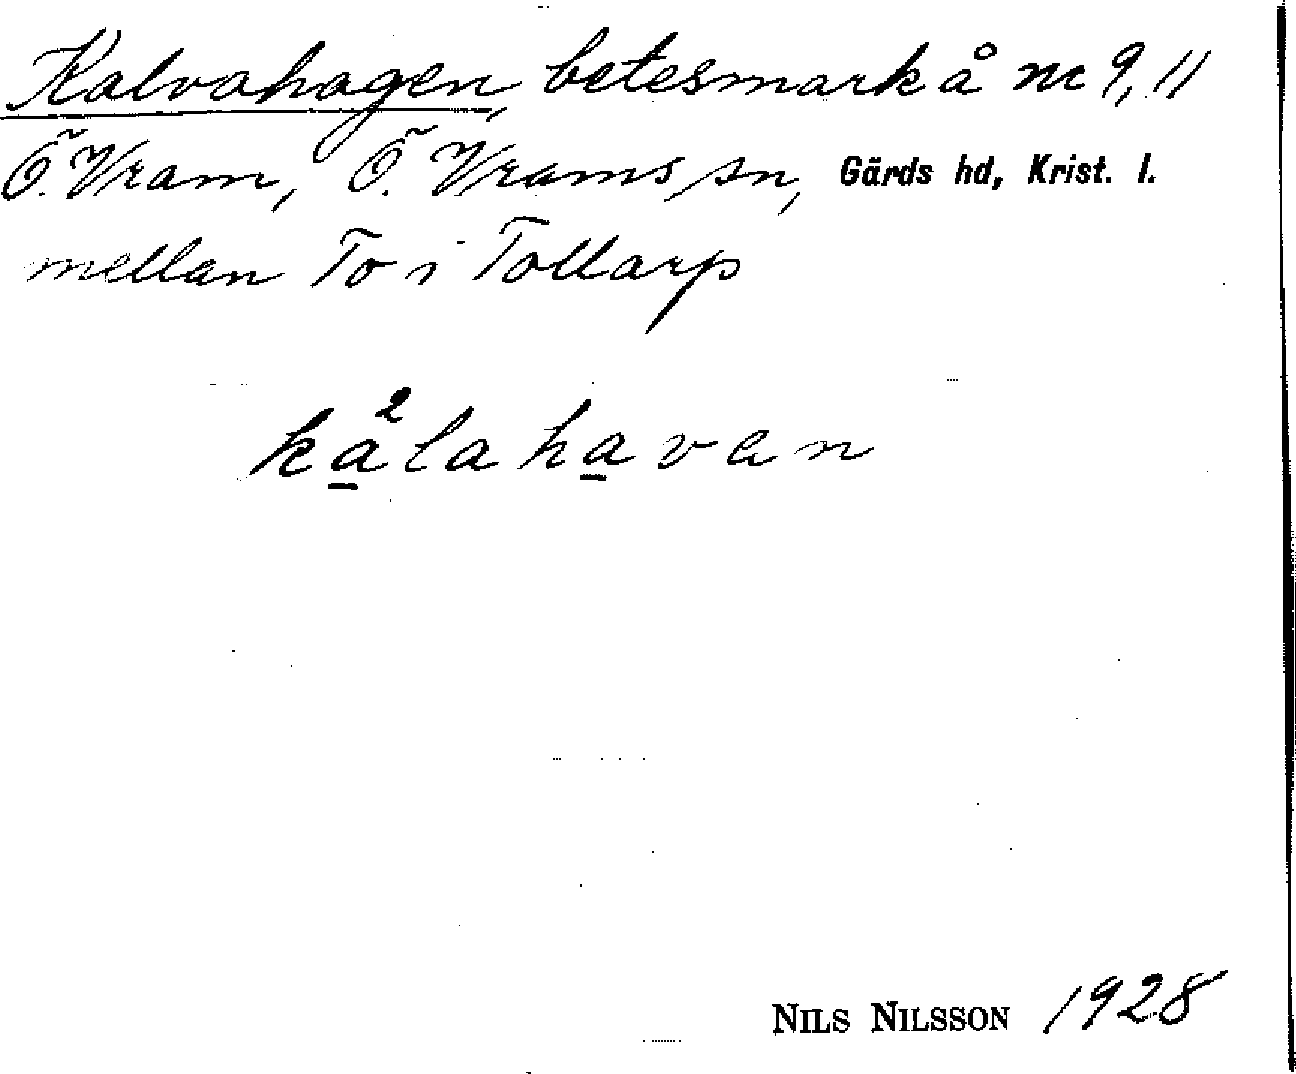 Kalvahagen, betesmark å nr 9, 11
Ö. Vram, Ö. Vrams sn, Gärds hd, Krist. l.
mellan To i Tollarp
ka²lahavan
NILS NILSSON 1928